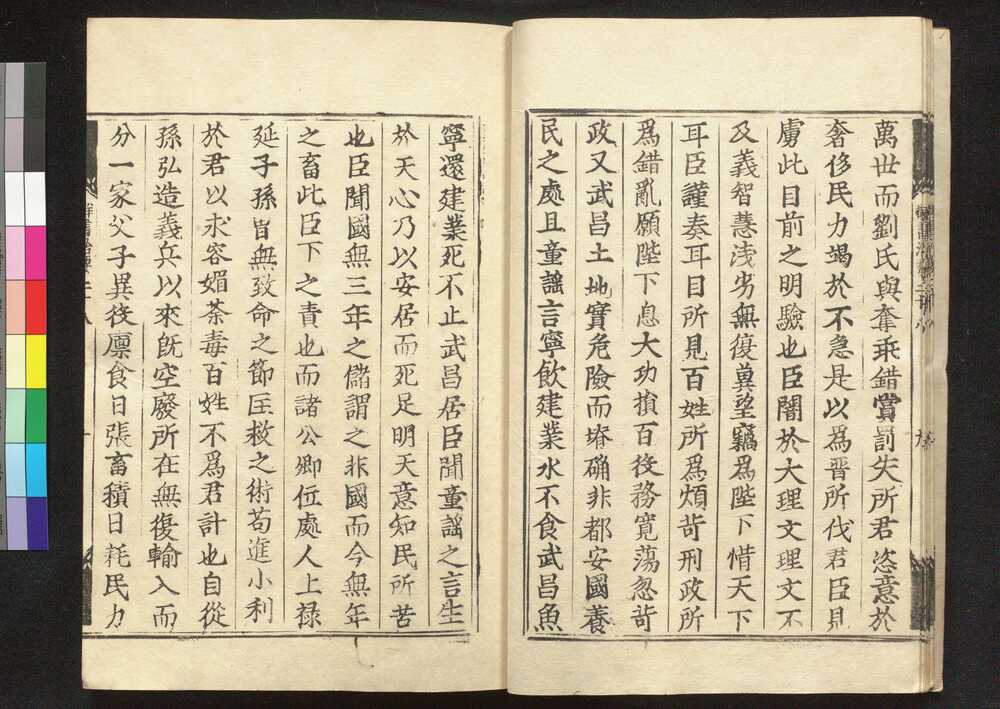 萬世而劉氏與奪乖錯賞罰失所君恣意於
奢侈民力竭於不急是以爲晉所伐君臣見
虜此目前之明驗也臣闇於大理文理文不
及義智慧浅劣無復冀望竊爲陛下惜天下
耳臣謹奏耳目所見百姓所爲煩苛刑政所
爲錯亂願陛下息大功損百役務寛蕩忽苛
政又武昌土地實危險而塉确非都安國養
民之處且童謡言寧飲建業水不食武昌魚
寧還建業死不止武昌居臣聞童謡之言生
於天心乃以安居而死足明天意知民所苦
也臣聞國無三年之儲謂之非國而今無年
之畜此臣下之責也而諸公卿位處人上禄
延子孫皆無致命之節匡救之術苟進小利
於君以求容媚荼毒百姓不爲君計也自從
孫弘造義兵以來既空廢所在無復輸入而
分一家父子異役廪食日張畜積日耗民力
群書治要二十八